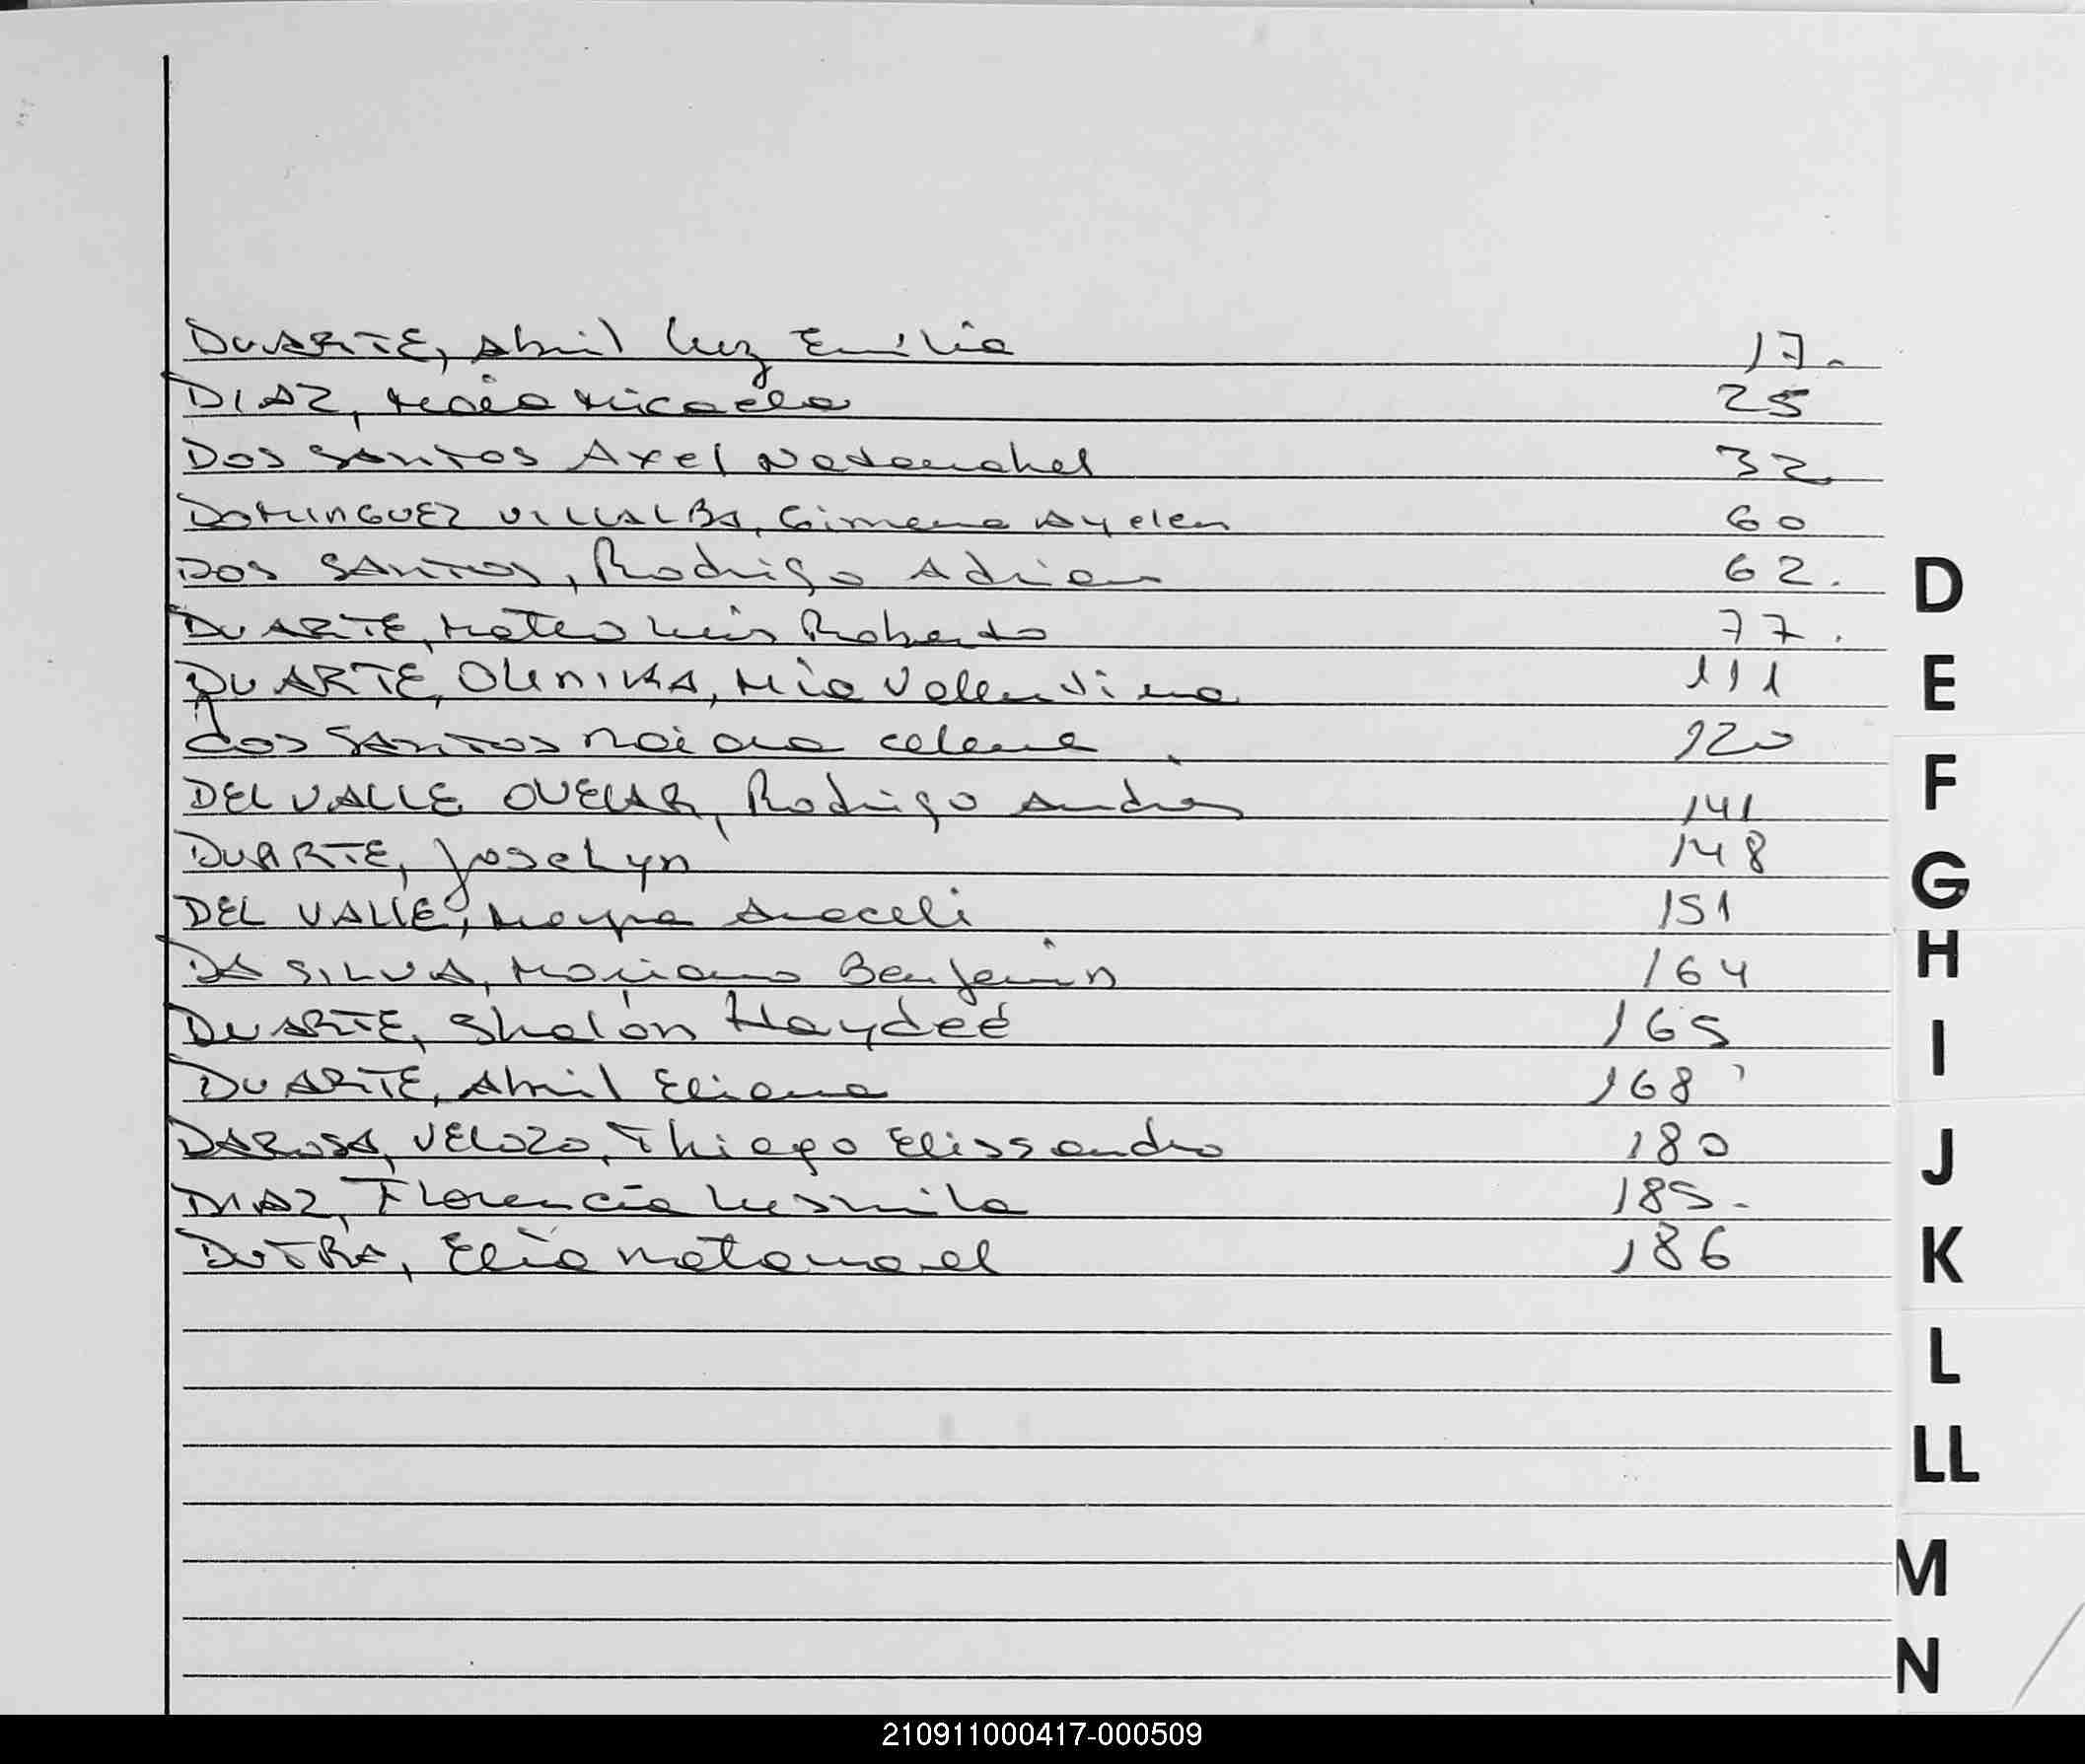 DUARTE, Abril Luz Emilia 17.
DIAZ, Micaela 25
DOS SANTOS Axel Natanahel 32.
DOMINGUEZ VILLALBA, Gimena Ayelen 60
DOS SANTOS, Rodrigo Adrian 62.
DUARTE, Mateo Luis Roberto 77.
DUARTE, OLINIKA, Mia Valentina 111
dos SANTOS Naiara Celene 120
DEL VALLE OVELAR, Rodrigo Andres 141
DUARTE, Joselyn 148
DEL VALLE, Mayra Araceli 151
DA SILVA, Mariano Benjamin 164
DUARTE, Shalón Haydeé 165
DUARTE, Abril Eliana 168
DAROSA, VELOZO, Thiago Elissandro 180
DIAZ, Florencia Lusmila 185.
DUTRA, Elia Natanael 186
D
E
F
G
H
I
J
K
L
LL
M
N
210911000417-000509